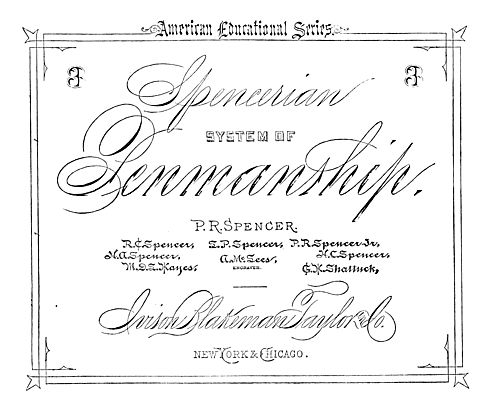 American Educational Series.
3 3
Spencerian
SYSTEM OF
Penmanship.
P. R. SPENCER.
R. C. Spencer, L. P. Spencer, P. R. Spencer Jr.
H. A. Spencer, A. McLees, H. C. Spencer,
M. D. L. Hayes, ENGRAVER. G. H. Shattuck,
Ivison, Blakeman, Taylor & Co.
NEW YORK & CHICAGO.